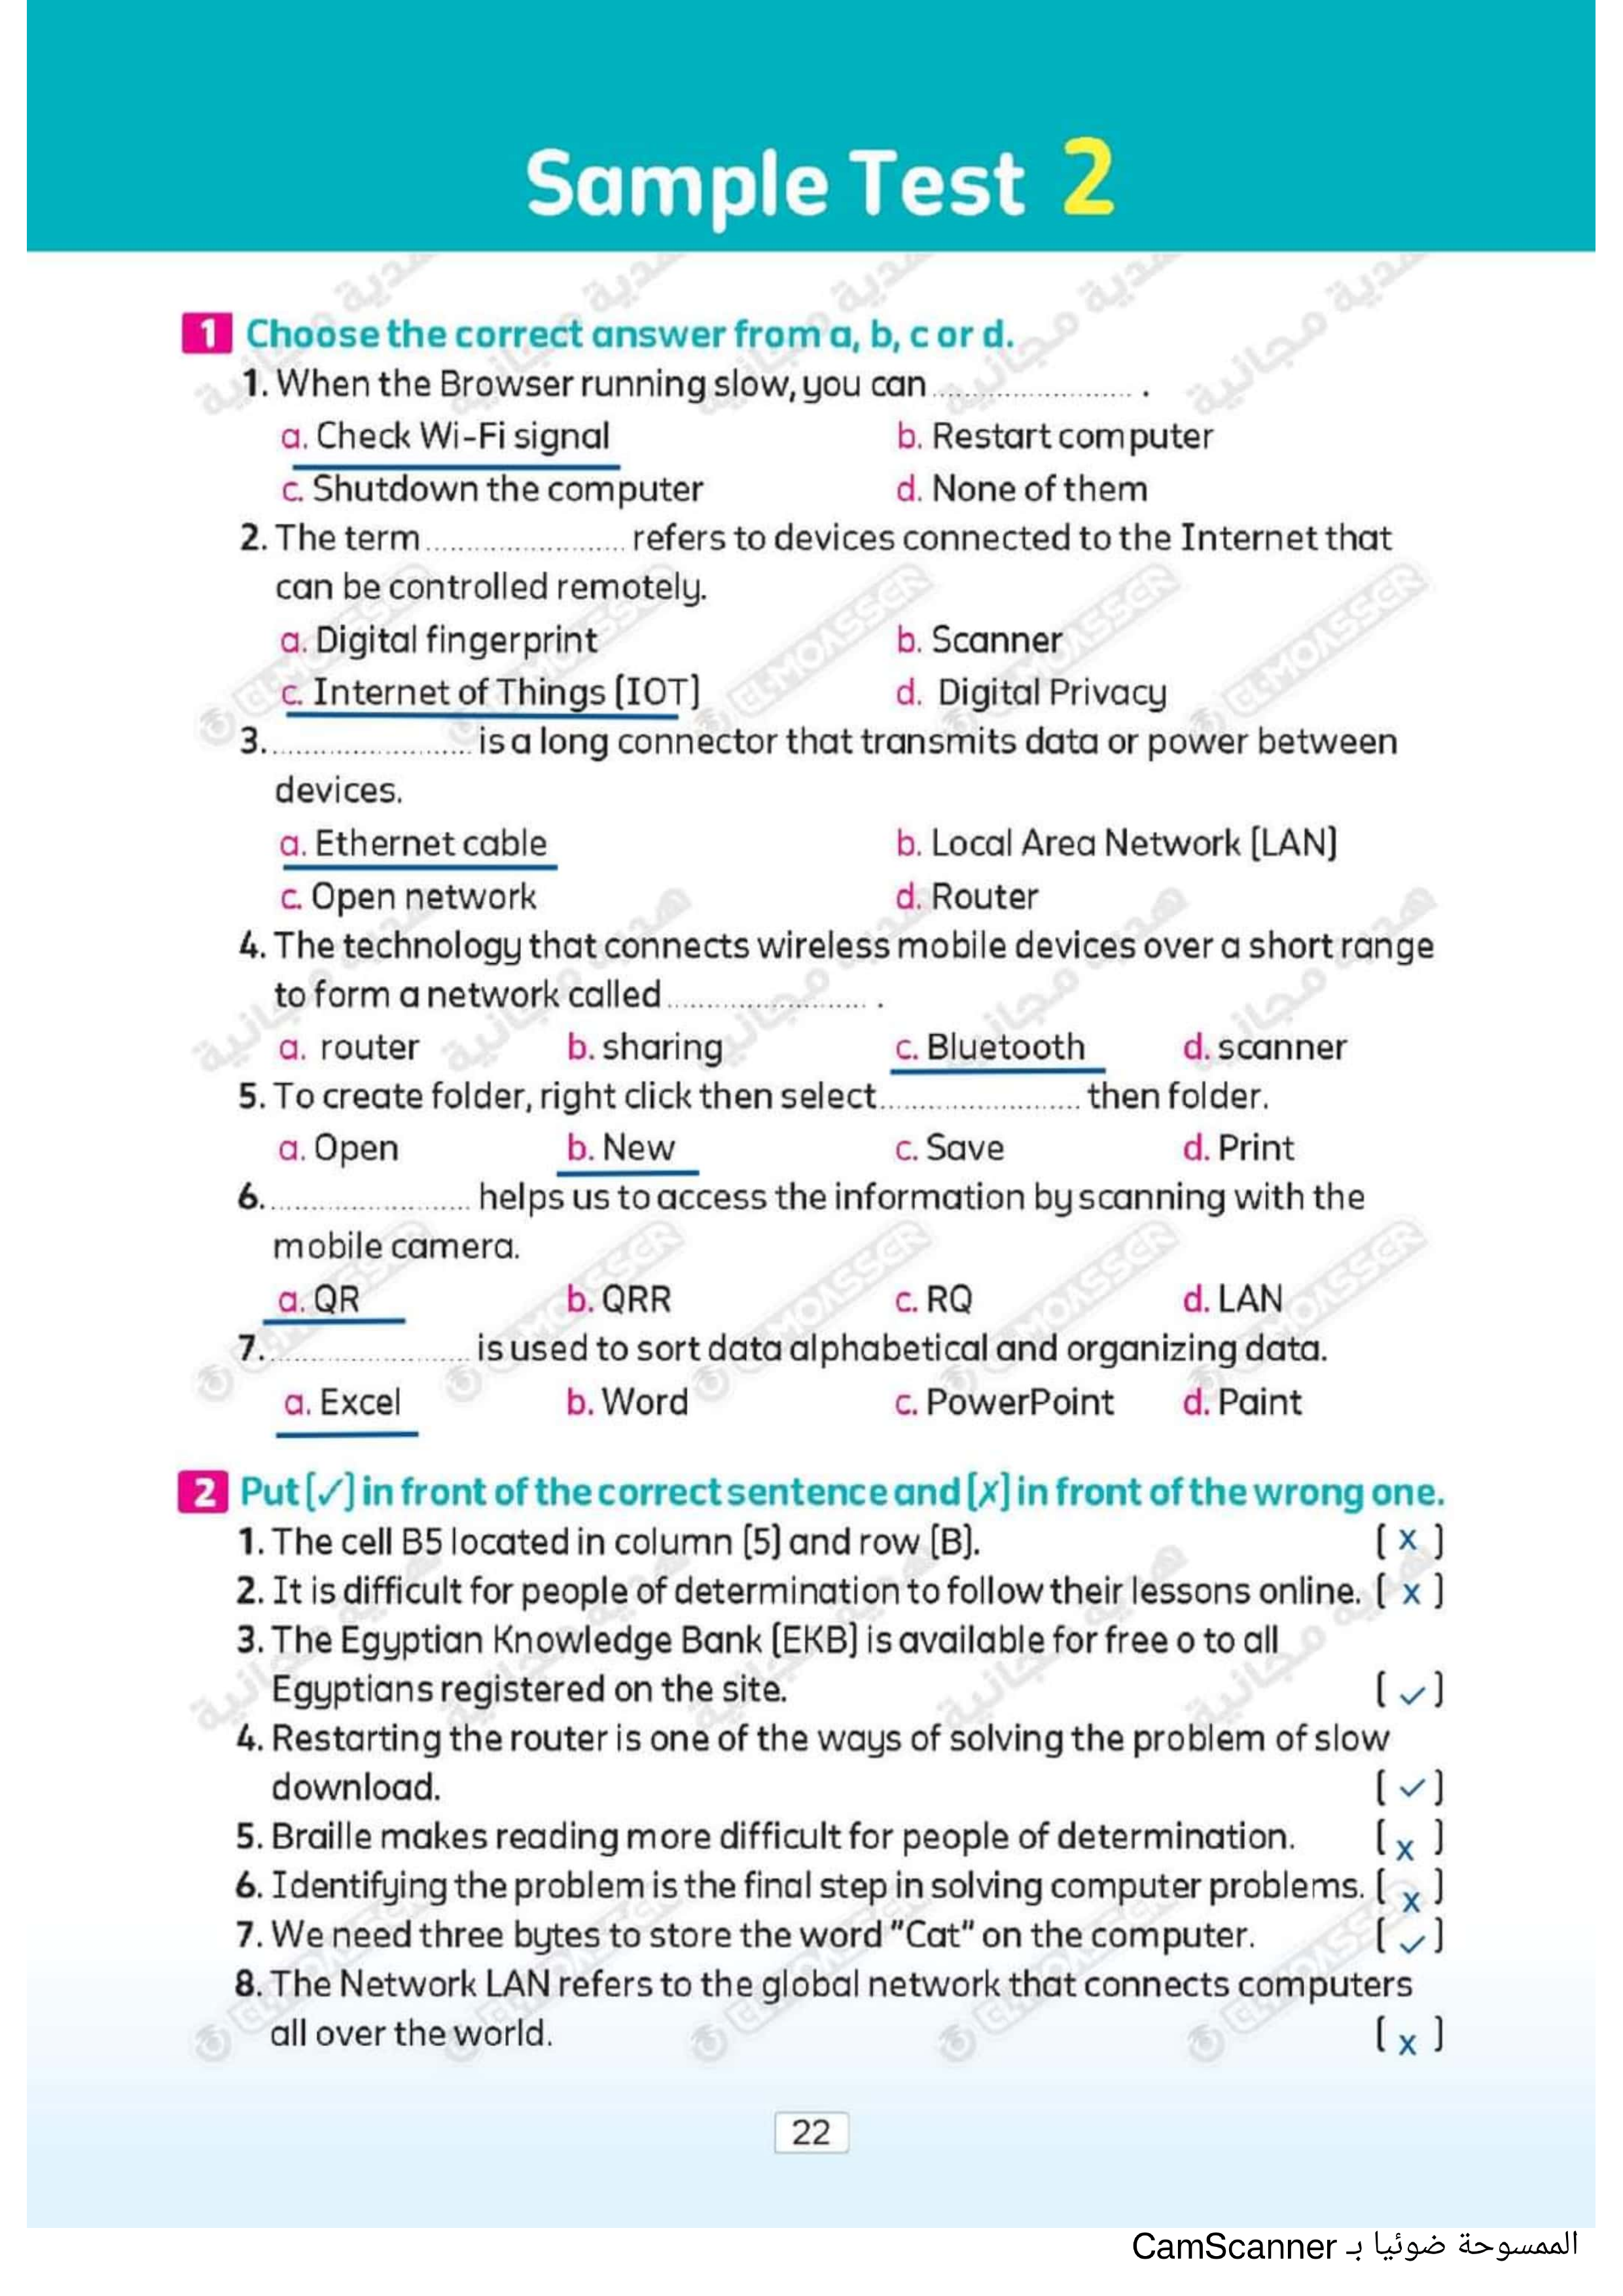 Sample Test 2
1 Choose the correct answer from a, b, c or d.
1. When the Browser running slow, you can ........................ .
a. Check Wi-Fi signal b. Restart computer
c. Shutdown the computer d. None of them
2. The term ........................ refers to devices connected to the Internet that
can be controlled remotely.
a. Digital fingerprint b. Scanner
c. Internet of Things (IOT) d. Digital Privacy
3. ........................ is a long connector that transmits data or power between
devices.
a. Ethernet cable b. Local Area Network (LAN)
c. Open network d. Router
4. The technology that connects wireless mobile devices over a short range
to form a network called ........................ .
a. router b. sharing c. Bluetooth d. scanner
5. To create folder, right click then select ........................ then folder.
a. Open b. New c. Save d. Print
6. ........................ helps us to access the information by scanning with the
mobile camera.
a. QR b. QRR c. RQ d. LAN
7. ........................ is used to sort data alphabetical and organizing data.
a. Excel b. Word c. PowerPoint d. Paint
2 Put (✓) in front of the correct sentence and (✗) in front of the wrong one.
1. The cell B5 located in column (5) and row (B). ( x )
2. It is difficult for people of determination to follow their lessons online. ( x )
3. The Egyptian Knowledge Bank (EKB) is available for free o to all
Egyptians registered on the site. ( ✓ )
4. Restarting the router is one of the ways of solving the problem of slow
download. ( ✓ )
5. Braille makes reading more difficult for people of determination. ( x )
6. Identifying the problem is the final step in solving computer problems. ( x )
7. We need three bytes to store the word "Cat" on the computer. ( ✓ )
8. The Network LAN refers to the global network that connects computers
all over the world. ( x )
22
الممسوحة ضوئيا بـ CamScanner